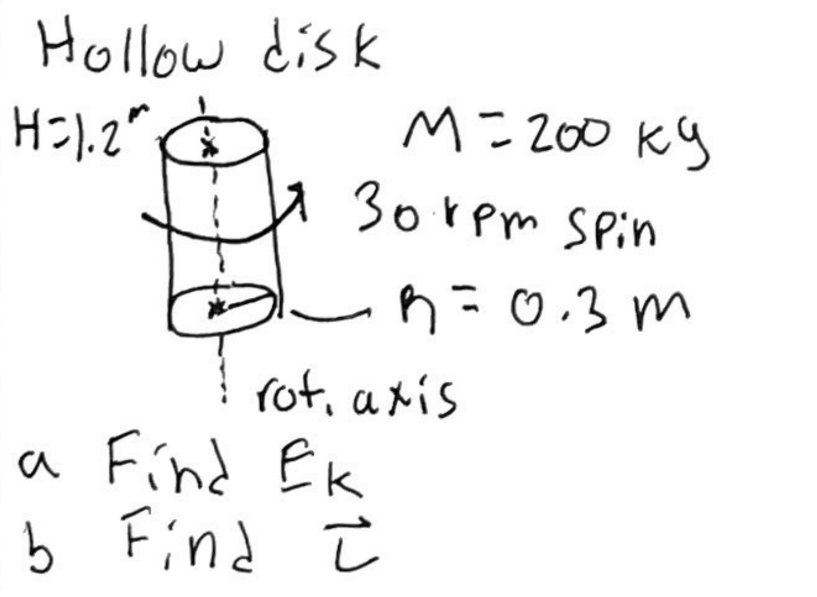 Hollow disk
H=1.2m
M=200 kg
30 rpm spin
R=0.3 m
rot. axis
a Find Ek
b Find L⃗